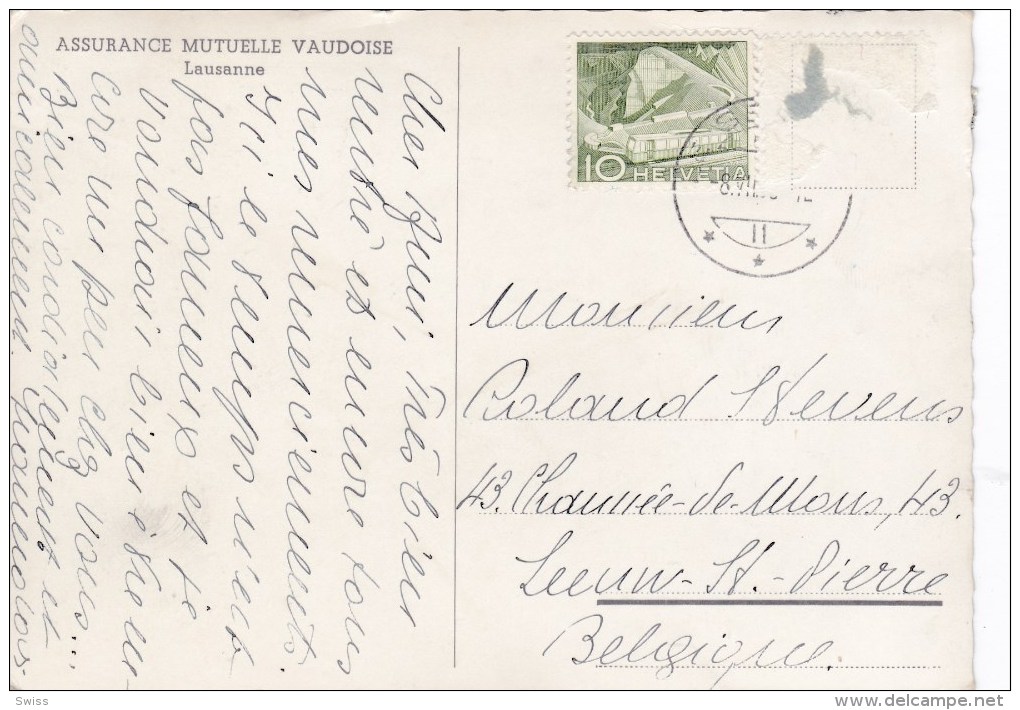 ASSURANCE MUTUELLE VAUDOISE
Lausanne
Cher ami, très bien
rentré et encore tous
mes remerciements.
Ici le temps n'est
pas fameux et je
voudrais bien être en
core un peu chez vous...
Bien cordialement et
amicalement
10 HELVETIA
II
Monsieur
Roland Stevens
43. Chaussée-de-Mons, 43.
Leeuw-St.-Pierre
Belgique.
Swiss
www.delcampe.net